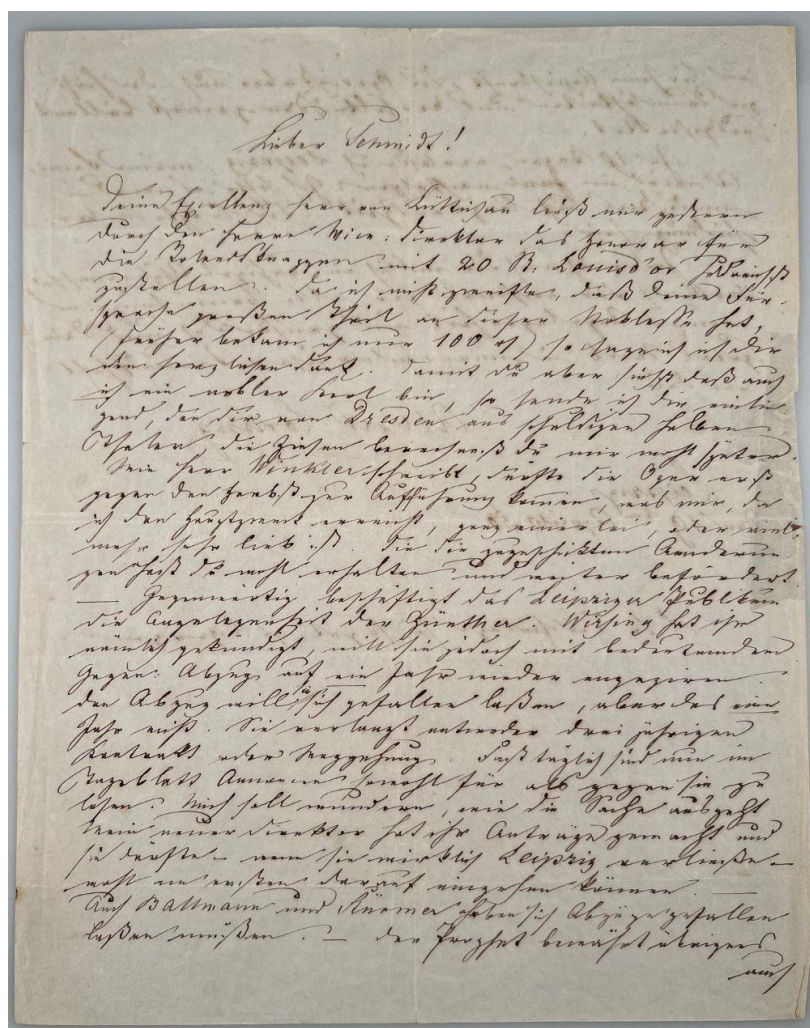 Lieber Schmidt!
Deine Excellenz Herr von Lüttichau ließ mir gestern
durch den Herrn Vice-Direktor das Honorar für
die Rolandsknappen mit 20 St. Louisd'or
zustellen. Da ich nicht zweifle, daß Deine Für-
sprache großen Theil an dieser Noblesse hat,
(früher bekam ich nur 100 rf) so sage ich Dir
den herzlichsten Dank. Damit Du aber siehst daß auch
ich ein nobler Kerl bin, so sende ich Dir einlie-
gend, den Dir von Dresden aus schuldigen halben
Thaler, die Zinsen berechnest Du mir wohl später.
Wie Herr Winkler schreibt, dürfte die Oper erst
gegen den Herbst zur Aufführung kommen, was mir, da
ich den Hauptzweck erreicht, ganz einerlei, oder viel-
mehr sehr lieb ist. Die Dir zugeschickten Aenderun-
gen hast Du wohl erhalten und weiter befördert.
— Gegenwärtig beschäftigt das Leipziger Publikum
die Angelegenheit der Günther. Wirsing hat ihr
nämlich gekündigt, will sie jedoch mit bedeutendem
Gagen-Abzug auf ein Jahr wieder engagiren.
Den Abzug will sie sich gefallen laßen, aber das eine
Jahr nicht. Sie verlangt entweder dreijährigen
Kontrakt oder . Fast täglich sind nun im
Tageblatt Annoncen sowohl für als gegen sie zu
lesen. Mich soll wundern, wie die Sache ausgeht
Mein neuer Direktor hat ihr Anträge gemacht und
sie dürfte – wenn sie wirklich Leipzig verließe –
wohl am ersten darauf eingehen können. —
Auch Ballmann und Stürmer haben sich Abzüge gefallen
laßen müßen. — Der Prophet bewährt übrigens
auch